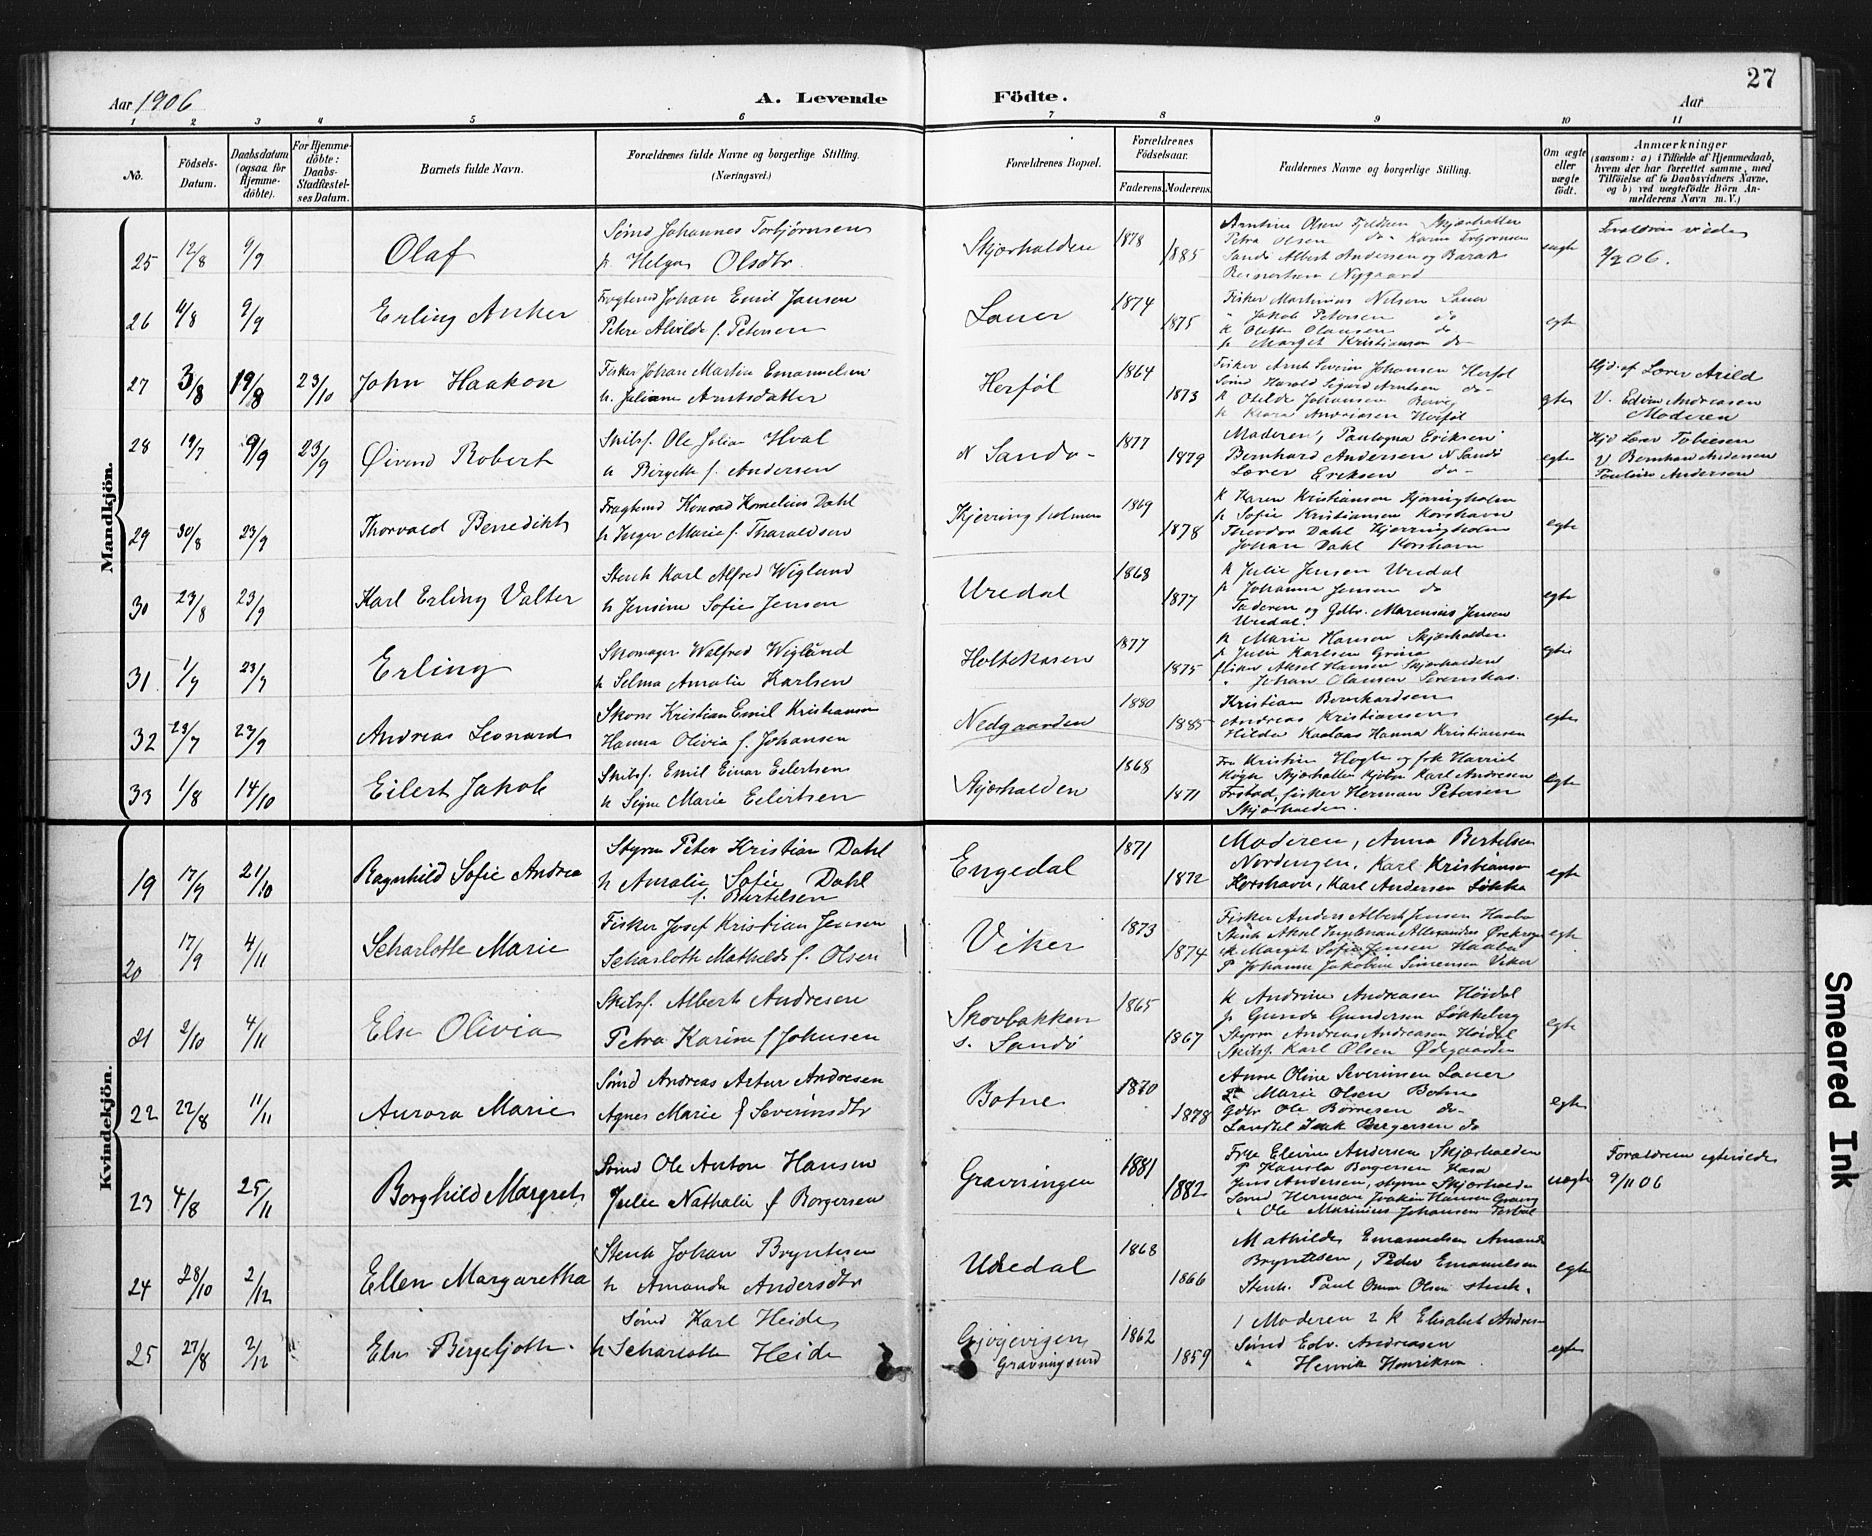 27
Aar 1906 A. Levende Födte. Aar
1 2 3 4 5 6 7 8 9 10 11
No.
Födsels-
Datum.
Daabsdatum
(ogsaa for
Hjemme-
döbte).
For Hjemme-
döbte:
Daabs-
Stadfæstel-
ses Datum.
Barnets fulde Navn.
Forældrenes fulde Navne og borgerlige Stilling.
(Næringsvei.)
Forældrenes Bopæl.
Forældrenes
Födselsaar.
Faderens. Moderens.
Faddernes Navne og borgerlige Stilling.
Om ægte
eller
uægte
födt.
Anmærkninger
(saasom: a) i Tilfælde af Hjemmedaab,
hvem der har forrettet samme, med
Tilföielse af to Daabsvidners Navne,
og b) ved uægtefödte Börn An-
melderens Navn m. V.)
Mandkjön.
25 12/8 9/9 Olaf
Sømd Johannes Torbjørnsen
h. Helga Olsdtr.
Skjærhalden 1878 1885
Petra Olsen do Karine Torbjørnsen
Albert Andersen og Barak
Reinertsen Nygaard
uægte
2/9 06.
26 11/8 9/9 Erling Anker
Fragtemd Johan Emil Jansen
Petre Alvilde f. Petersen
Lauer 1874 1875
Fisker Martinius Nilsen Lauer
" Jakob Petersen do
k Olette Olausen do
p Margit Kristiansen do-
egte
27 3/8 19/8 23/10 John Haakon
Fisker Johan Martin Emanuelsen
h. Juliane Arntsdatter
Herföl 1864 1873
Fisker Arnt Severin Johansen Herföl
Sömd Harald Sigurd Arntsen do-
k Otelde Johansen
k Klara Andreasen Herföl
egte
Hjd. af Lærer Arild
V. Edvin Andreasen
Moderen
28 19/7 9/9 23/9 Øivend Robert
Skibsf. Ole Julian Hval
h Birgette f. Andersen
N Sandö- 1877 1879
Moderen, Paulogna Eriksen
Bernhard Andersen N Sandö
Lærer Eriksen do-
egte
Hjd Lærer Tobiesen
V Bernhard Andersen
Pauline Andersen
29 30/8 23/9 Thorvald Benedikt
Fragtemd Konrad Kornelius Dahl
h Inger Marie f. Tharaldsen
Kjerringholmen 1869 1878
k Karen Kristiansen Kjerringholm
p Sofie Kristiansen Korshavn
Theodor Dahl Kjerringholm
Johan Dahl Korshavn
egte
30 23/8 23/9 Karl Erling Valter
Stenh Karl Alfred Wiglund
h Jensine Sofie Jensen
Uredal 1868 1877
k Julie Jensen Uredal
p Johanne Jensen do
Faderen og Gdbr. Marensius Jensen
Uredal.
egte
31 1/9 23/9 Erling
Skomager Walfred Wiglund
h Selma Amalie Karlsen
Holtekasen 1877 1875
k Marie Hansen Skjærhalden
p Julie Karlsen
fisker Aksel Hansen Skjærhalden
" Johan Olausen
egte
32 23/7 23/9 Andreas Leonard
Skom Kristian Emil Kristiansen
Hanna Olivia f. Johansen
Nedgaarden 1880 1885
Kristian Bernhardsen
Andreas Kristiansen
Hilda Hanna Kristiansen
egte
33 1/8 14/10 Eilert Jakob
Skibsf. Emil Einar Eilertsen
h Signe Marie Eilertsen
Skjærhalden 1868 1871
Fru Kristine Høgh og frk Harriet
Høgh Skjærhalden Karl Andresen
fisker Herman Petersen
Skjærhalden.
egte
Kvindekjön.
19 17/9 21/10 Ragnhild Sofie Andrea
Styrm Peter Kristian Dahl
h Amalie Sofie Dahl
f. Bertelsen
Engedal 1871 1872
Moderen, Anna Bertelsen
Nordengen, Karl Kristiansen
Korshavn, Karl Andersen Løkka
egte
20 17/9 4/11 Scharlotte Marie
Fisker Josef Kristian Jensen
Scharlotte Mathilde f. Olsen
Viker 1873 1874
Fisker Anders Albert Jensen Haabu
k Margit Sofie Jensen Haabu
P Johanne Jakobine Simensen Viker
egte
21 2/10 4/11 Else Olivia
Skibsf. Albert Andresen
Petra Karine f Johnsen
Skovbakken
S. Sandö
1865 1867
k Andrine Andreasen Höidal
p Gunda Gundersen Løkkeberg
Styrm Andreas Andreasen Höidal
Skibsf. Karl Olsen Ødegaarden
egte
22 22/8 11/11 Aurora Marie
Sömd Andreas Artur Andresen
Agnes Marie f Severinsdtr
Botne 1870 1878
Anne Oline Severinsen Lauer
P Marie Olsen Botne
Gdbr Ole Børresen do-
Isak Bergersen do
egte
23 4/8 25/11 Borghild Margret
Sömd Ole Anton Hansen
Julie Nathalie f Borgersen
Gravningen 1881 1882
Frue Elvine Andersen Skjærhalden
P Kansta Borgersen Kasa
Jens Andersen, styrm Skjærhalden
Sömd Herman Joakim Hansen Gravn
" Ole Marinius Johansen
uægte
Forældrene egteviede
9/11 06
24 28/10 2/12 Ellen Margaretha
Stenh Johan Bryntesen
h Amanda Andersdtr
Uredal 1868 1866
Mathilde Emanuelsen Amanda
Bryntesen, Peder Emanuelsen
Stenh. Paul Olsen stenh.
egte
25 27/8 2/12 Else Bergeljoth
Sömd Karl Heide
h Scharlotte Heide
Gjøgevigen
Gravningsund
1862 1859
1 Moderen 2 k Elisabet Andresen
Sömd Edv. Andreasen
" Henrik Henriksen
egte
Smeared Ink